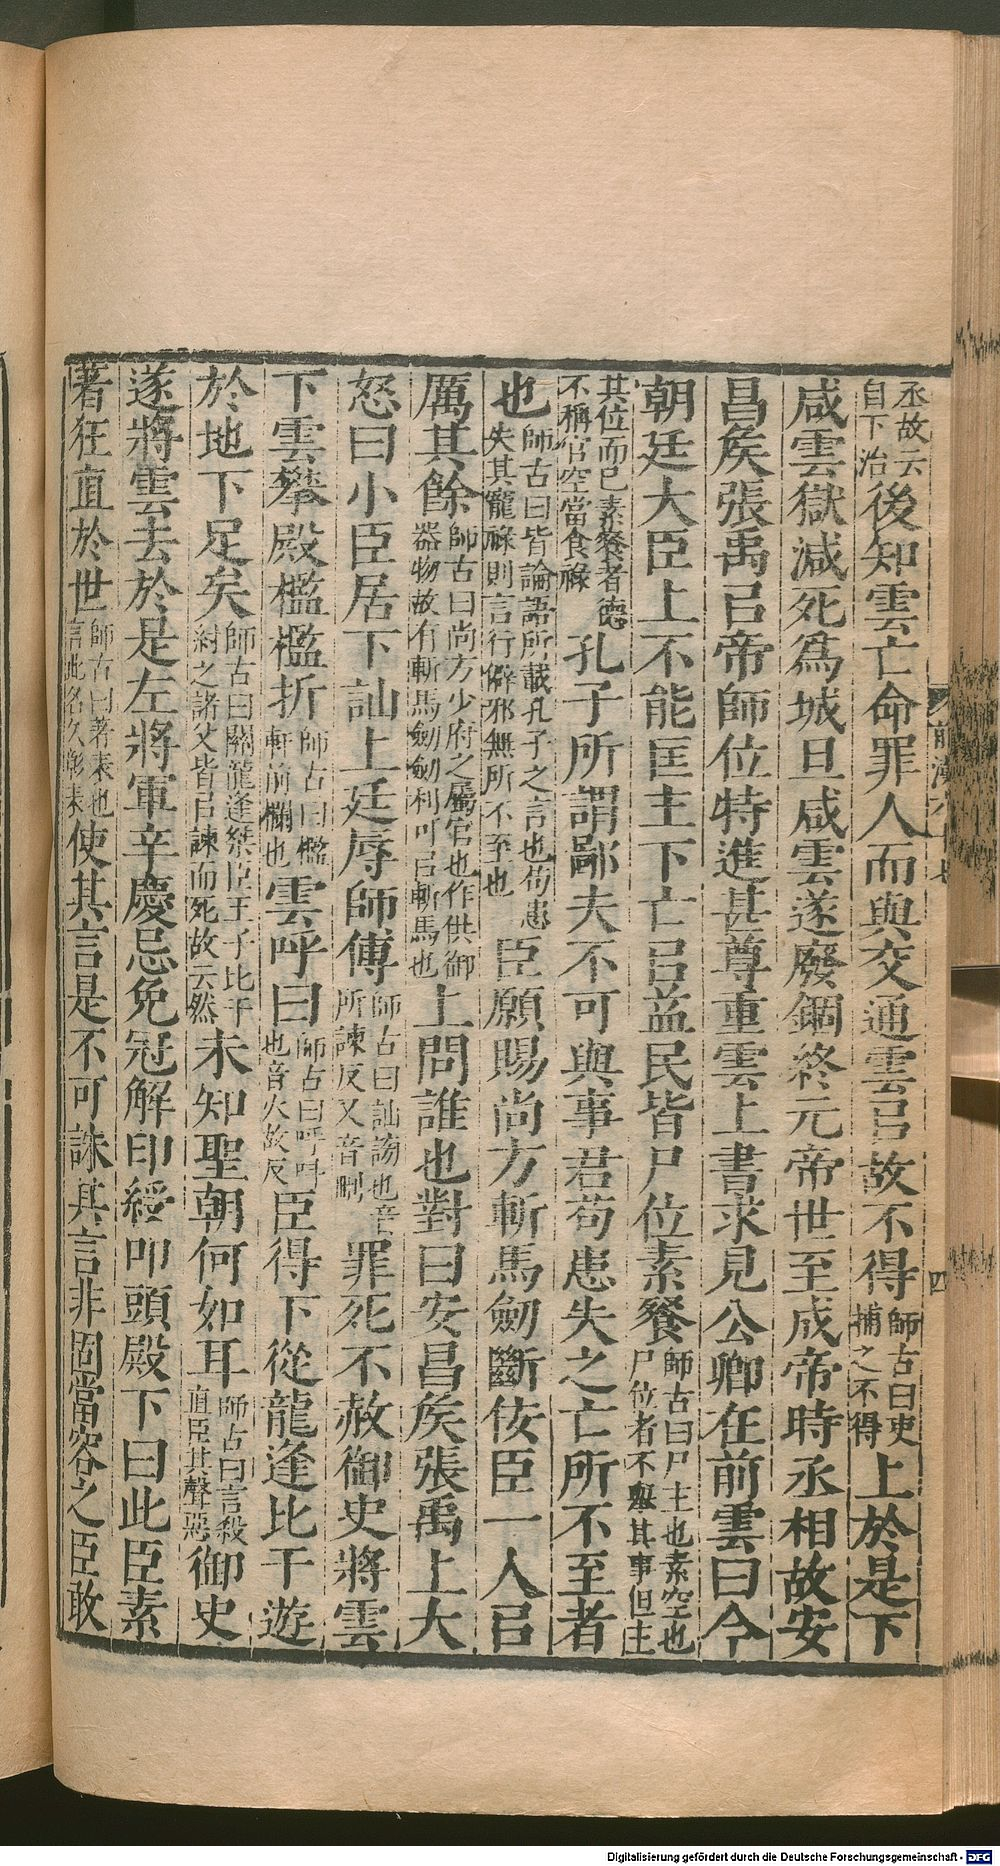 丞故云自下治後知雲亡命罪人而與交通雲㠯故不得師古曰吏捕之不得上於是下
咸雲獄減死爲城旦咸雲遂廢錮終元帝世至成帝時丞相故安
昌矦張禹㠯帝師位特進甚尊重雲上書求見公卿在前雲曰今
朝廷大臣上不能匡主下亡㠯益民皆尸位素餐師古曰尸主也素空也尸位者不舉其事但主
其位而已素餐者德不稱官空當食祿孔子所謂鄙夫不可與事君苟患失之亡所不至者
也師古曰皆論語所載孔子之言也苟患失其寵祿則言行僻邪無所不至也臣願賜尚方斬馬劒斷佞臣一人㠯
厲其餘師古曰尚方少府之屬官也作供御器物故有斬馬劒劒利可㠯斬馬也上問誰也對曰安昌矦張禹上大
怒曰小臣居下訕上廷辱師傅師古曰訕謗也音所諫反又音刪罪死不赦御史將雲
下雲攀殿檻檻折師古曰檻軒前欄也雲呼曰師古曰呼叫也音火故反臣得下從龍逢比干遊
於地下足矣師古曰關龍逢桀臣王子比干紂之諸父皆㠯諫而死故云然未知聖朝何如耳師古曰言殺直臣其聲惡御史
遂將雲去於是左將軍辛慶忌免冠解印綬叩頭殿下曰此臣素
著狂直於世師古曰著表也言此名久彰表使其言是不可誅其言非固當容之臣敢
四
Digitalisierung gefördert durch die Deutsche Forschungsgemeinschaft - DFG